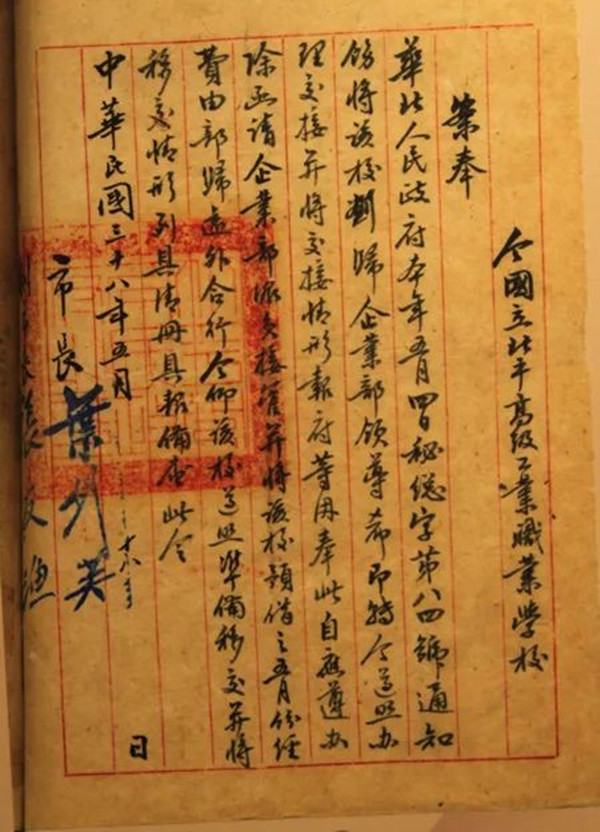 令國立北平高級工業職業學校
案奉
華北人民政府本年五月四日秘總字第八四號通知
飭將該校劃歸企業部領導希即轉令遵照办
理交接并將交接情形報府等因奉此自應遵办
除函請企業部派員接管并將該校預借之五月份經
費由部歸還外合行令仰該校遵照準備移交并將
移交情形列具清冊具報備查此令
中華民國三十八年五月 日
市長 葉剑英